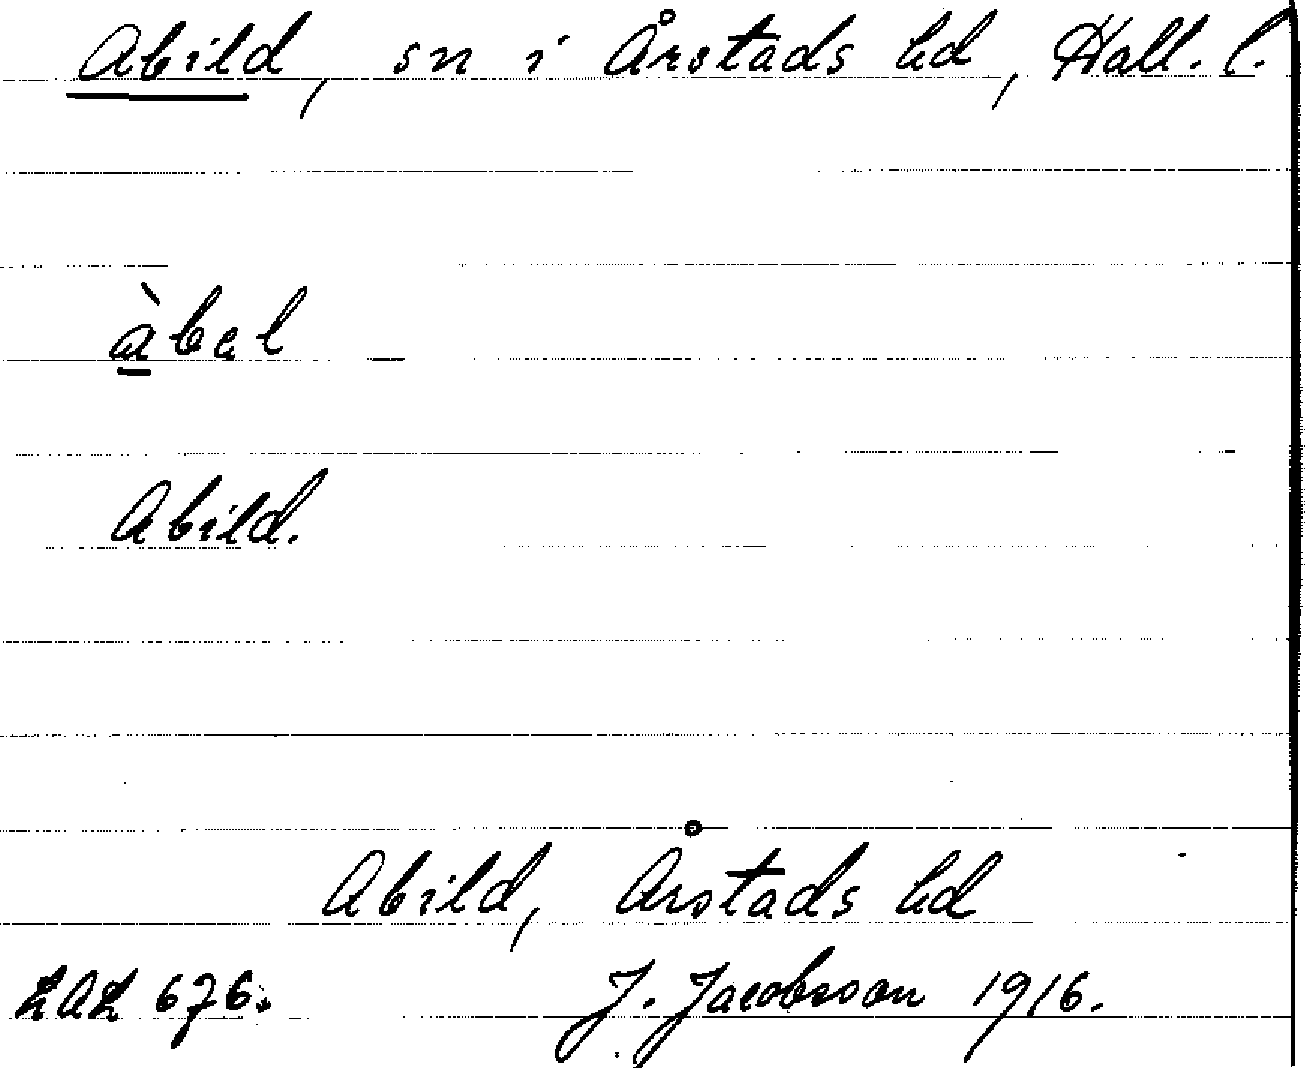 Abild, sn i Årstads hd, Hall. l.
àbel
Abild.
Abild, Årstads hd
LAL 676. J. Jacobsson 1916.